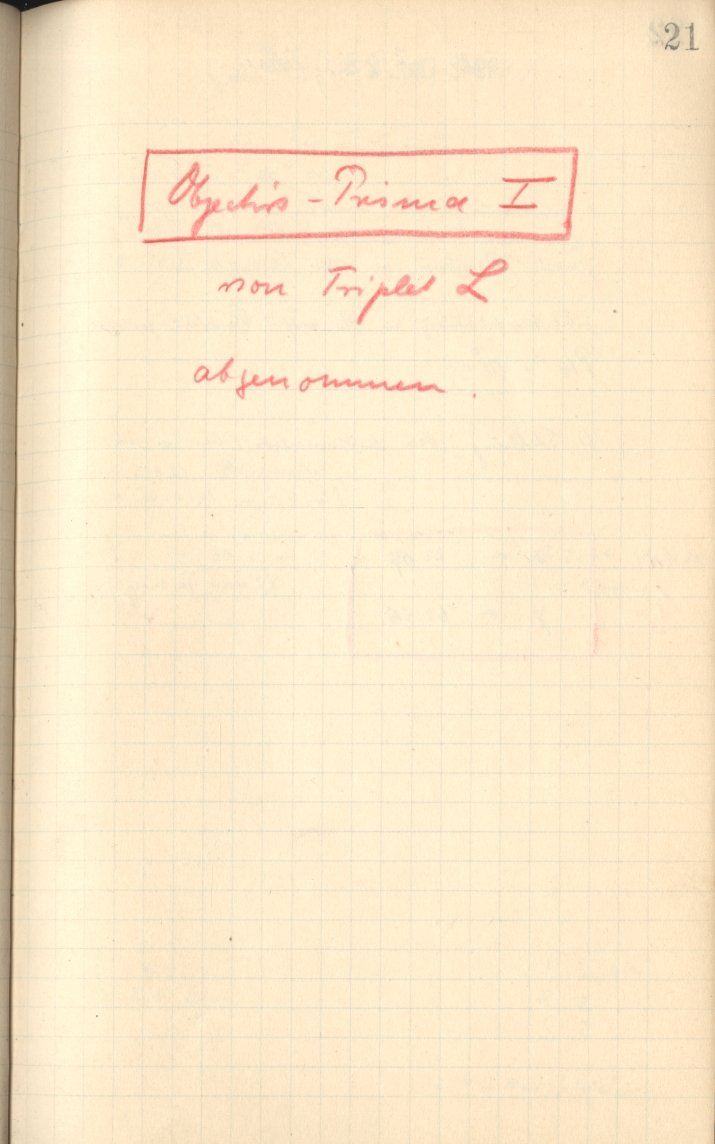 21
Objectiv-Prisma I
von Triplet L
abgenommen.